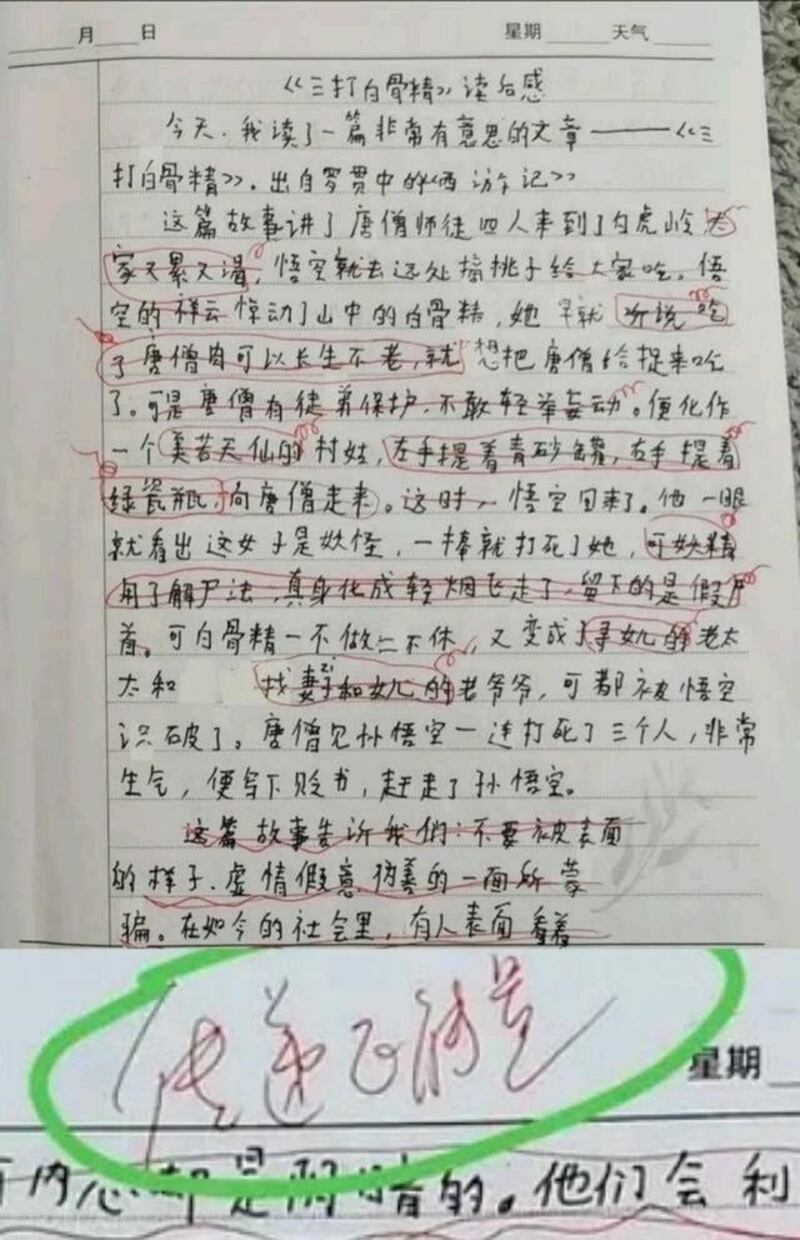 月 日 星期 天气
《三打白骨精》读后感
今天,我读了一篇非常有意思的文章——《三
打白骨精》。出自罗贯中的《西游记》
这篇故事讲了唐僧师徒四人来到了白虎岭,大
家又累又渴,悟空就去远处摘桃子给大家吃。悟
空的祥云惊动了山中的白骨精,她早就听说吃
了唐僧肉可以长生不老,就想把唐僧给捉来吃
了。可是唐僧有徒弟保护,不敢轻举妄动。便化作
一个美若天仙的村姑,左手提着青砂罐,右手提着
绿瓷瓶,向唐僧走来。这时,悟空回来了。他一眼
就看出这女子是妖怪,一棒就打死了她,可妖精
用了解尸法,真身化成轻烟飞走了,留下的是假尸
首。可白骨精一不做二不休,又变成了寻女儿的老太
太和 找妻子和女儿的老爷爷,可都被悟空
识破了。唐僧见孙悟空一连打死了三个人,非常
生气,便写下贬书,赶走了孙悟空。
这篇故事告诉我们:不要被表面
的样子、虚情假意伪善的一面所蒙
骗。在如今的社会里,有人表面看着
传递正能量
星期
内心却是阴暗的。他们会利